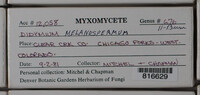 Acc # 12,058 MYXOMYCETE Genus # 676
11-13mm
DIDYMIUM MELANOSPERMUM
Place CLEAR CRK. CO. CHICAGO FORKS - WEST.
COLORADO.
Date 9-2-81 Collector MITCHEL - CHAPMAN
Personal collector: Mitchel & Chapman
Denver Botanic Gardens Herbarium of Fungi
816629